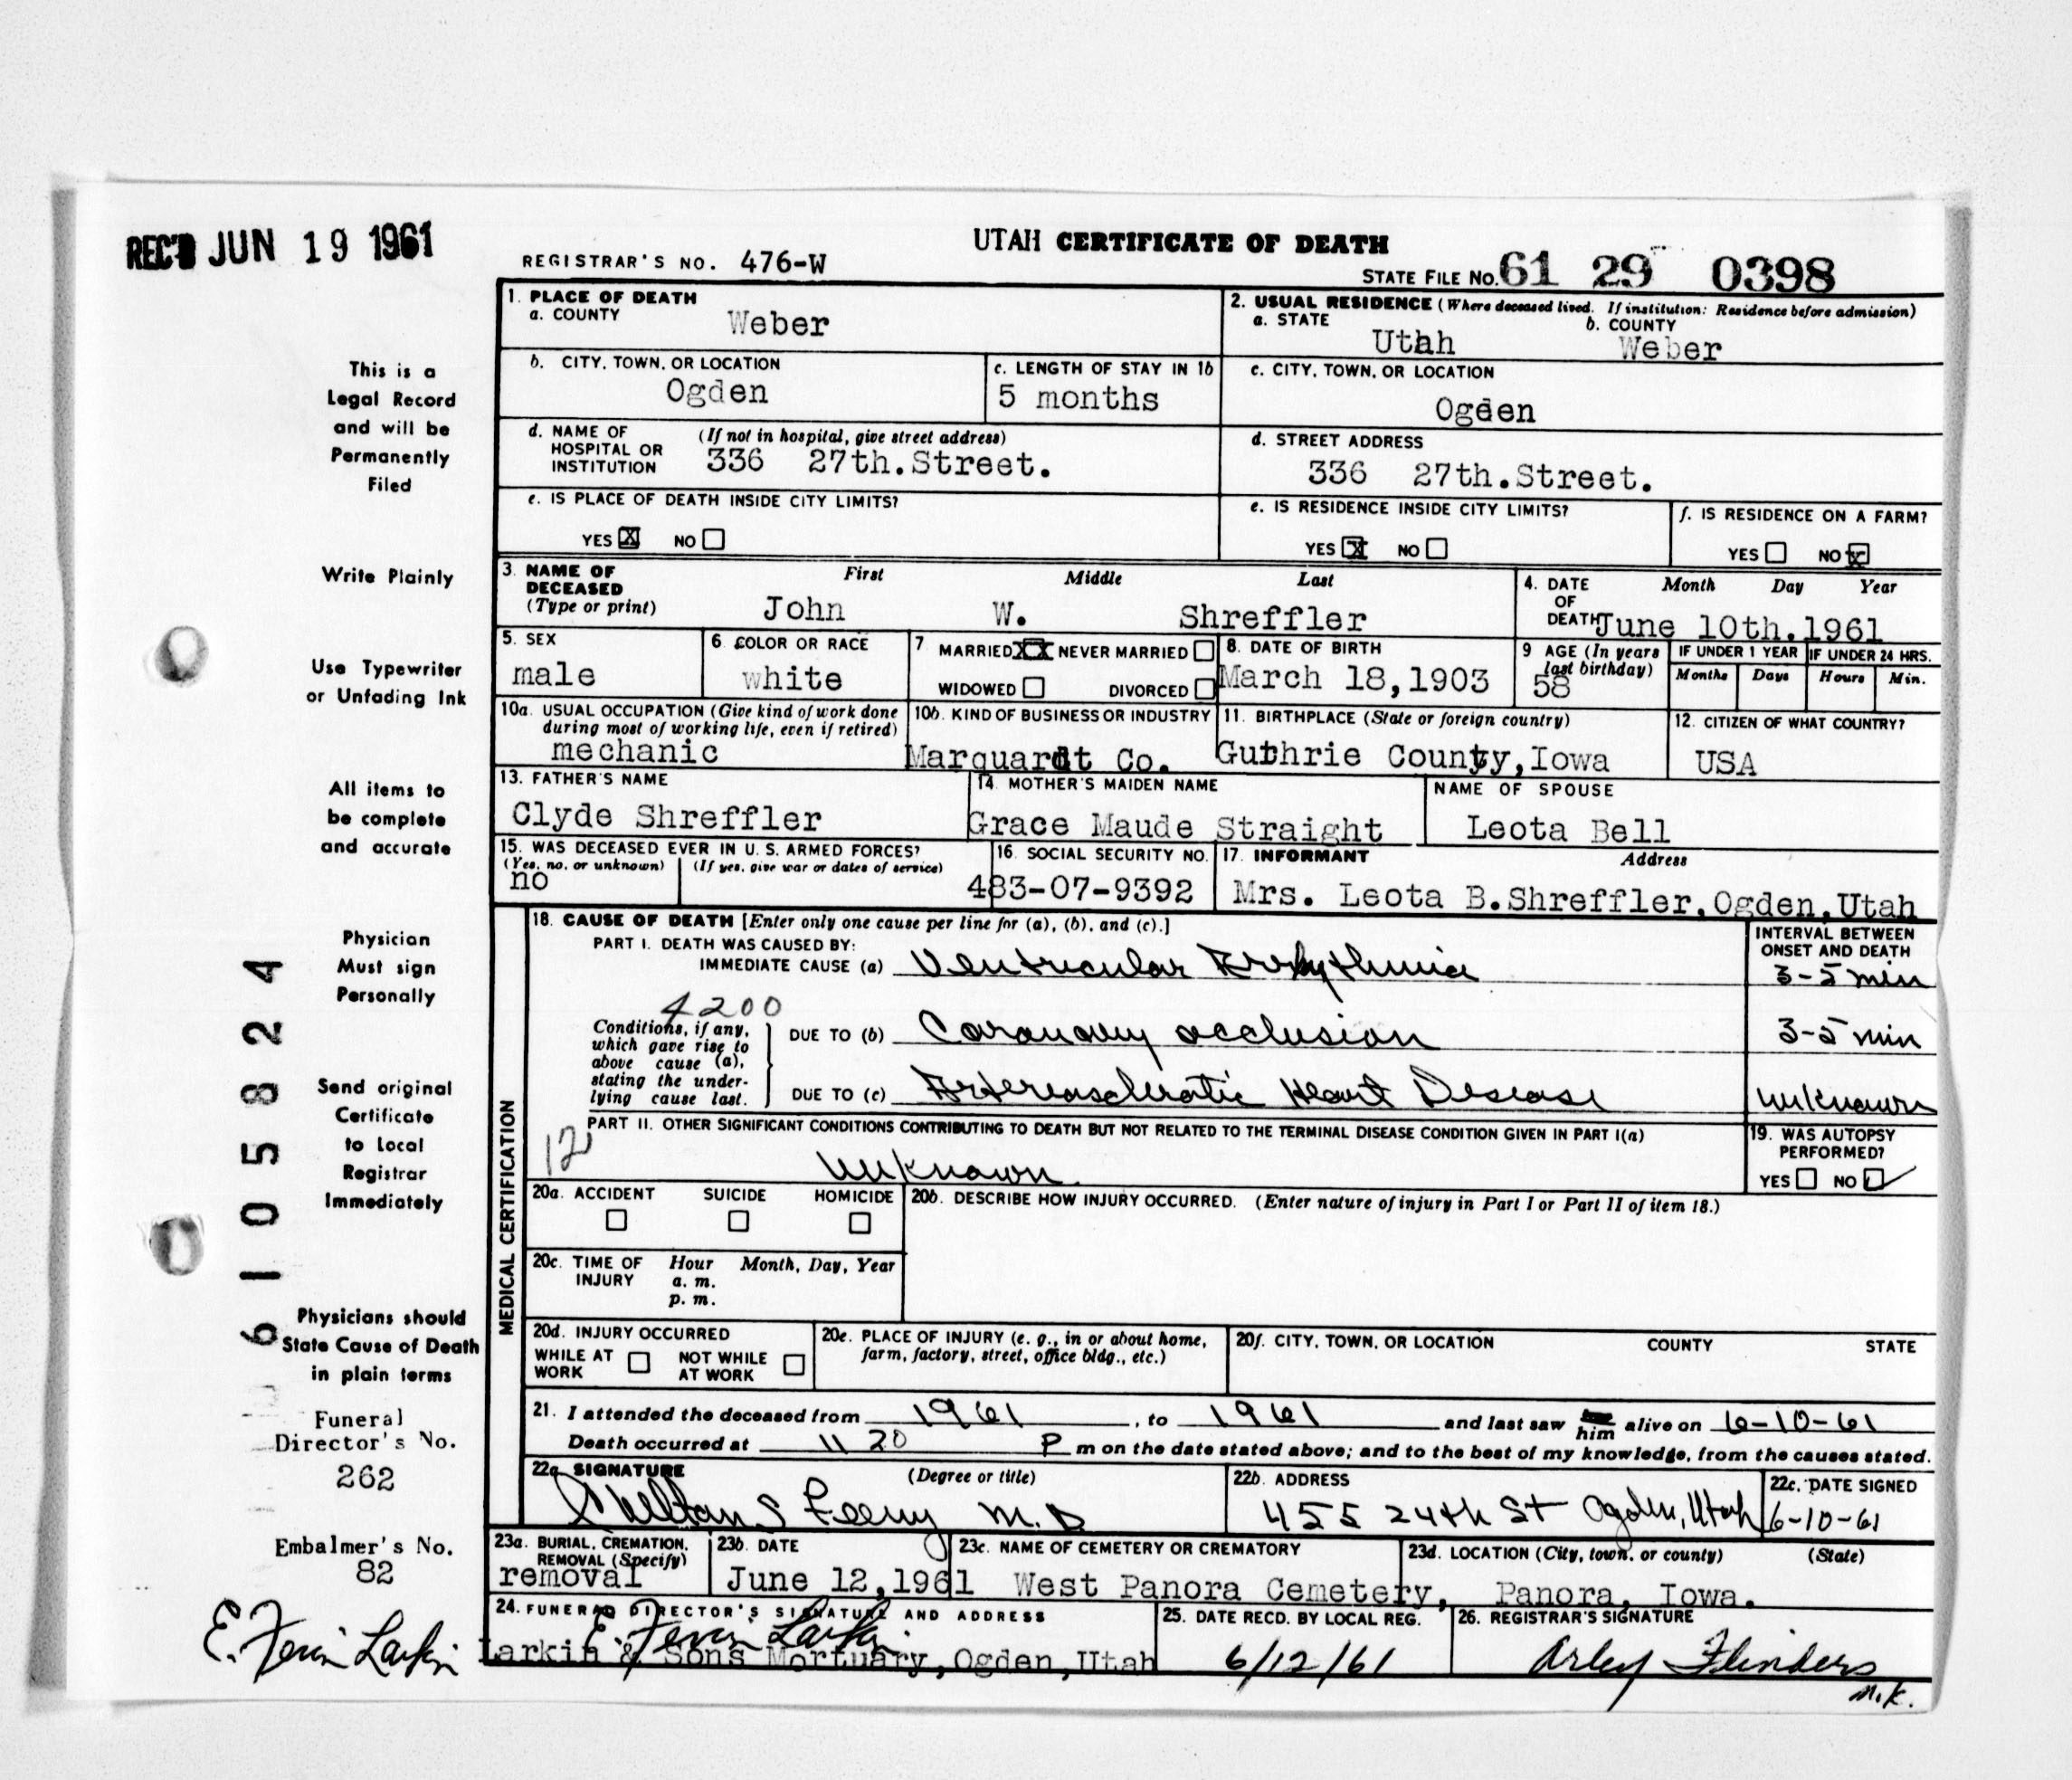 REC'D JUN 19 1961
UTAH CERTIFICATE OF DEATH
REGISTRAR'S NO. 476-W
STATE FILE NO. 61 29 0398
This is a
Legal Record
and will be
Permanently
Filed
Write Plainly
Use Typewriter
or Unfading Ink
All items to
be complete
and accurate
Physician
Must sign
Personally
Send original
Certificate
to Local
Registrar
Immediately
Physicians should
State Cause of Death
in plain terms
Funeral
Director's No.
262
Embalmer's No.
82
E. Larkin
6105824
1. PLACE OF DEATH
a. COUNTY Weber
2. USUAL RESIDENCE (Where deceased lived. If institution: Residence before admission)
a. STATE Utah b. COUNTY Weber
b. CITY, TOWN, OR LOCATION Ogden
c. LENGTH OF STAY IN 1b 5 months
c. CITY, TOWN, OR LOCATION Ogden
d. NAME OF HOSPITAL OR INSTITUTION (If not in hospital, give street address) 336 27th.Street.
d. STREET ADDRESS 336 27th.Street.
e. IS PLACE OF DEATH INSIDE CITY LIMITS?
YES X NO
e. IS RESIDENCE INSIDE CITY LIMITS?
YES X NO
f. IS RESIDENCE ON A FARM?
YES NO X
3. NAME OF DECEASED (Type or print) First Middle Last
John W. Shreffler
4. DATE OF DEATH Month Day Year
June 10th.1961
5. SEX male
6. COLOR OR RACE white
7 MARRIED XX NEVER MARRIED
WIDOWED DIVORCED
8. DATE OF BIRTH March 18,1903
9 AGE (In years last birthday) 58
IF UNDER 1 YEAR Months Days
IF UNDER 24 HRS. Hours Min.
10a. USUAL OCCUPATION (Give kind of work done during most of working life, even if retired)
mechanic
10b. KIND OF BUSINESS OR INDUSTRY
Marquardt Co.
11. BIRTHPLACE (State or foreign country)
Guthrie County,Iowa
12. CITIZEN OF WHAT COUNTRY?
USA
13. FATHER'S NAME
Clyde Shreffler
14. MOTHER'S MAIDEN NAME
Grace Maude Straight
NAME OF SPOUSE
Leota Bell
15. WAS DECEASED EVER IN U. S. ARMED FORCES?
(Yes, no, or unknown) (If yes, give war or dates of service)
no
16. SOCIAL SECURITY NO.
483-07-9392
17. INFORMANT Address
Mrs. Leota B.Shreffler,Ogden,Utah
MEDICAL CERTIFICATION
18. CAUSE OF DEATH [Enter only one cause per line for (a), (b), and (c).]
INTERVAL BETWEEN ONSET AND DEATH
PART I. DEATH WAS CAUSED BY:
IMMEDIATE CAUSE (a) Ventricular Arrhythmia 3-5 min
4200
Conditions, if any, which gave rise to above cause (a), stating the underlying cause last.
DUE TO (b) Coronary occlusion 3-5 min
DUE TO (c) Arteriosclerotic Heart Disease unknown
PART II. OTHER SIGNIFICANT CONDITIONS CONTRIBUTING TO DEATH BUT NOT RELATED TO THE TERMINAL DISEASE CONDITION GIVEN IN PART I(a)
unknown
19. WAS AUTOPSY PERFORMED?
YES NO ✓
20a. ACCIDENT SUICIDE HOMICIDE
20b. DESCRIBE HOW INJURY OCCURRED. (Enter nature of injury in Part I or Part II of item 18.)
20c. TIME OF INJURY Hour Month, Day, Year
a. m.
p. m.
20d. INJURY OCCURRED
WHILE AT WORK NOT WHILE AT WORK
20e. PLACE OF INJURY (e. g., in or about home, farm, factory, street, office bldg., etc.)
20f. CITY, TOWN, OR LOCATION COUNTY STATE
21. I attended the deceased from 1961, to 1961 and last saw him alive on 6-10-61
Death occurred at 11 20 P m on the date stated above; and to the best of my knowledge, from the causes stated.
22a. SIGNATURE (Degree or title)
M.D
22b. ADDRESS
455 24th St Ogden, Utah
22c. DATE SIGNED
6-10-61
23a. BURIAL, CREMATION, REMOVAL (Specify)
removal
23b. DATE
June 12,1961
23c. NAME OF CEMETERY OR CREMATORY
West Panora Cemetery,
23d. LOCATION (City, town, or county) (State)
Panora, Iowa.
24. FUNERAL DIRECTOR'S SIGNATURE AND ADDRESS
E. Larkin
Larkin & Sons Mortuary,Ogden,Utah
25. DATE RECD. BY LOCAL REG.
6/12/61
26. REGISTRAR'S SIGNATURE
Arley Flinders
M.K.